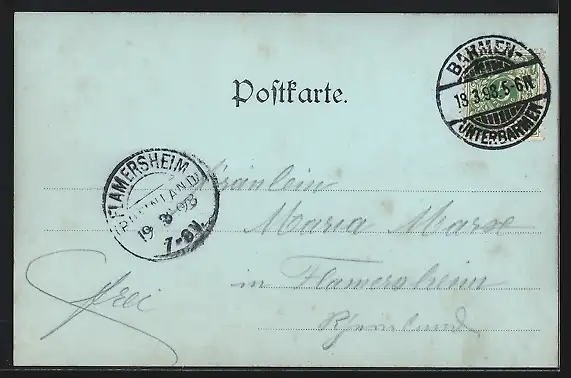 Postkarte.
BARMEN-
18.3.98.5-6N
UNTERBARMEN
FLAMERSHEIM
(RHEINLAND)
19 3 98
7-8V
Fräulein
Maria Marx
in Flamersheim
Rheinland
frei